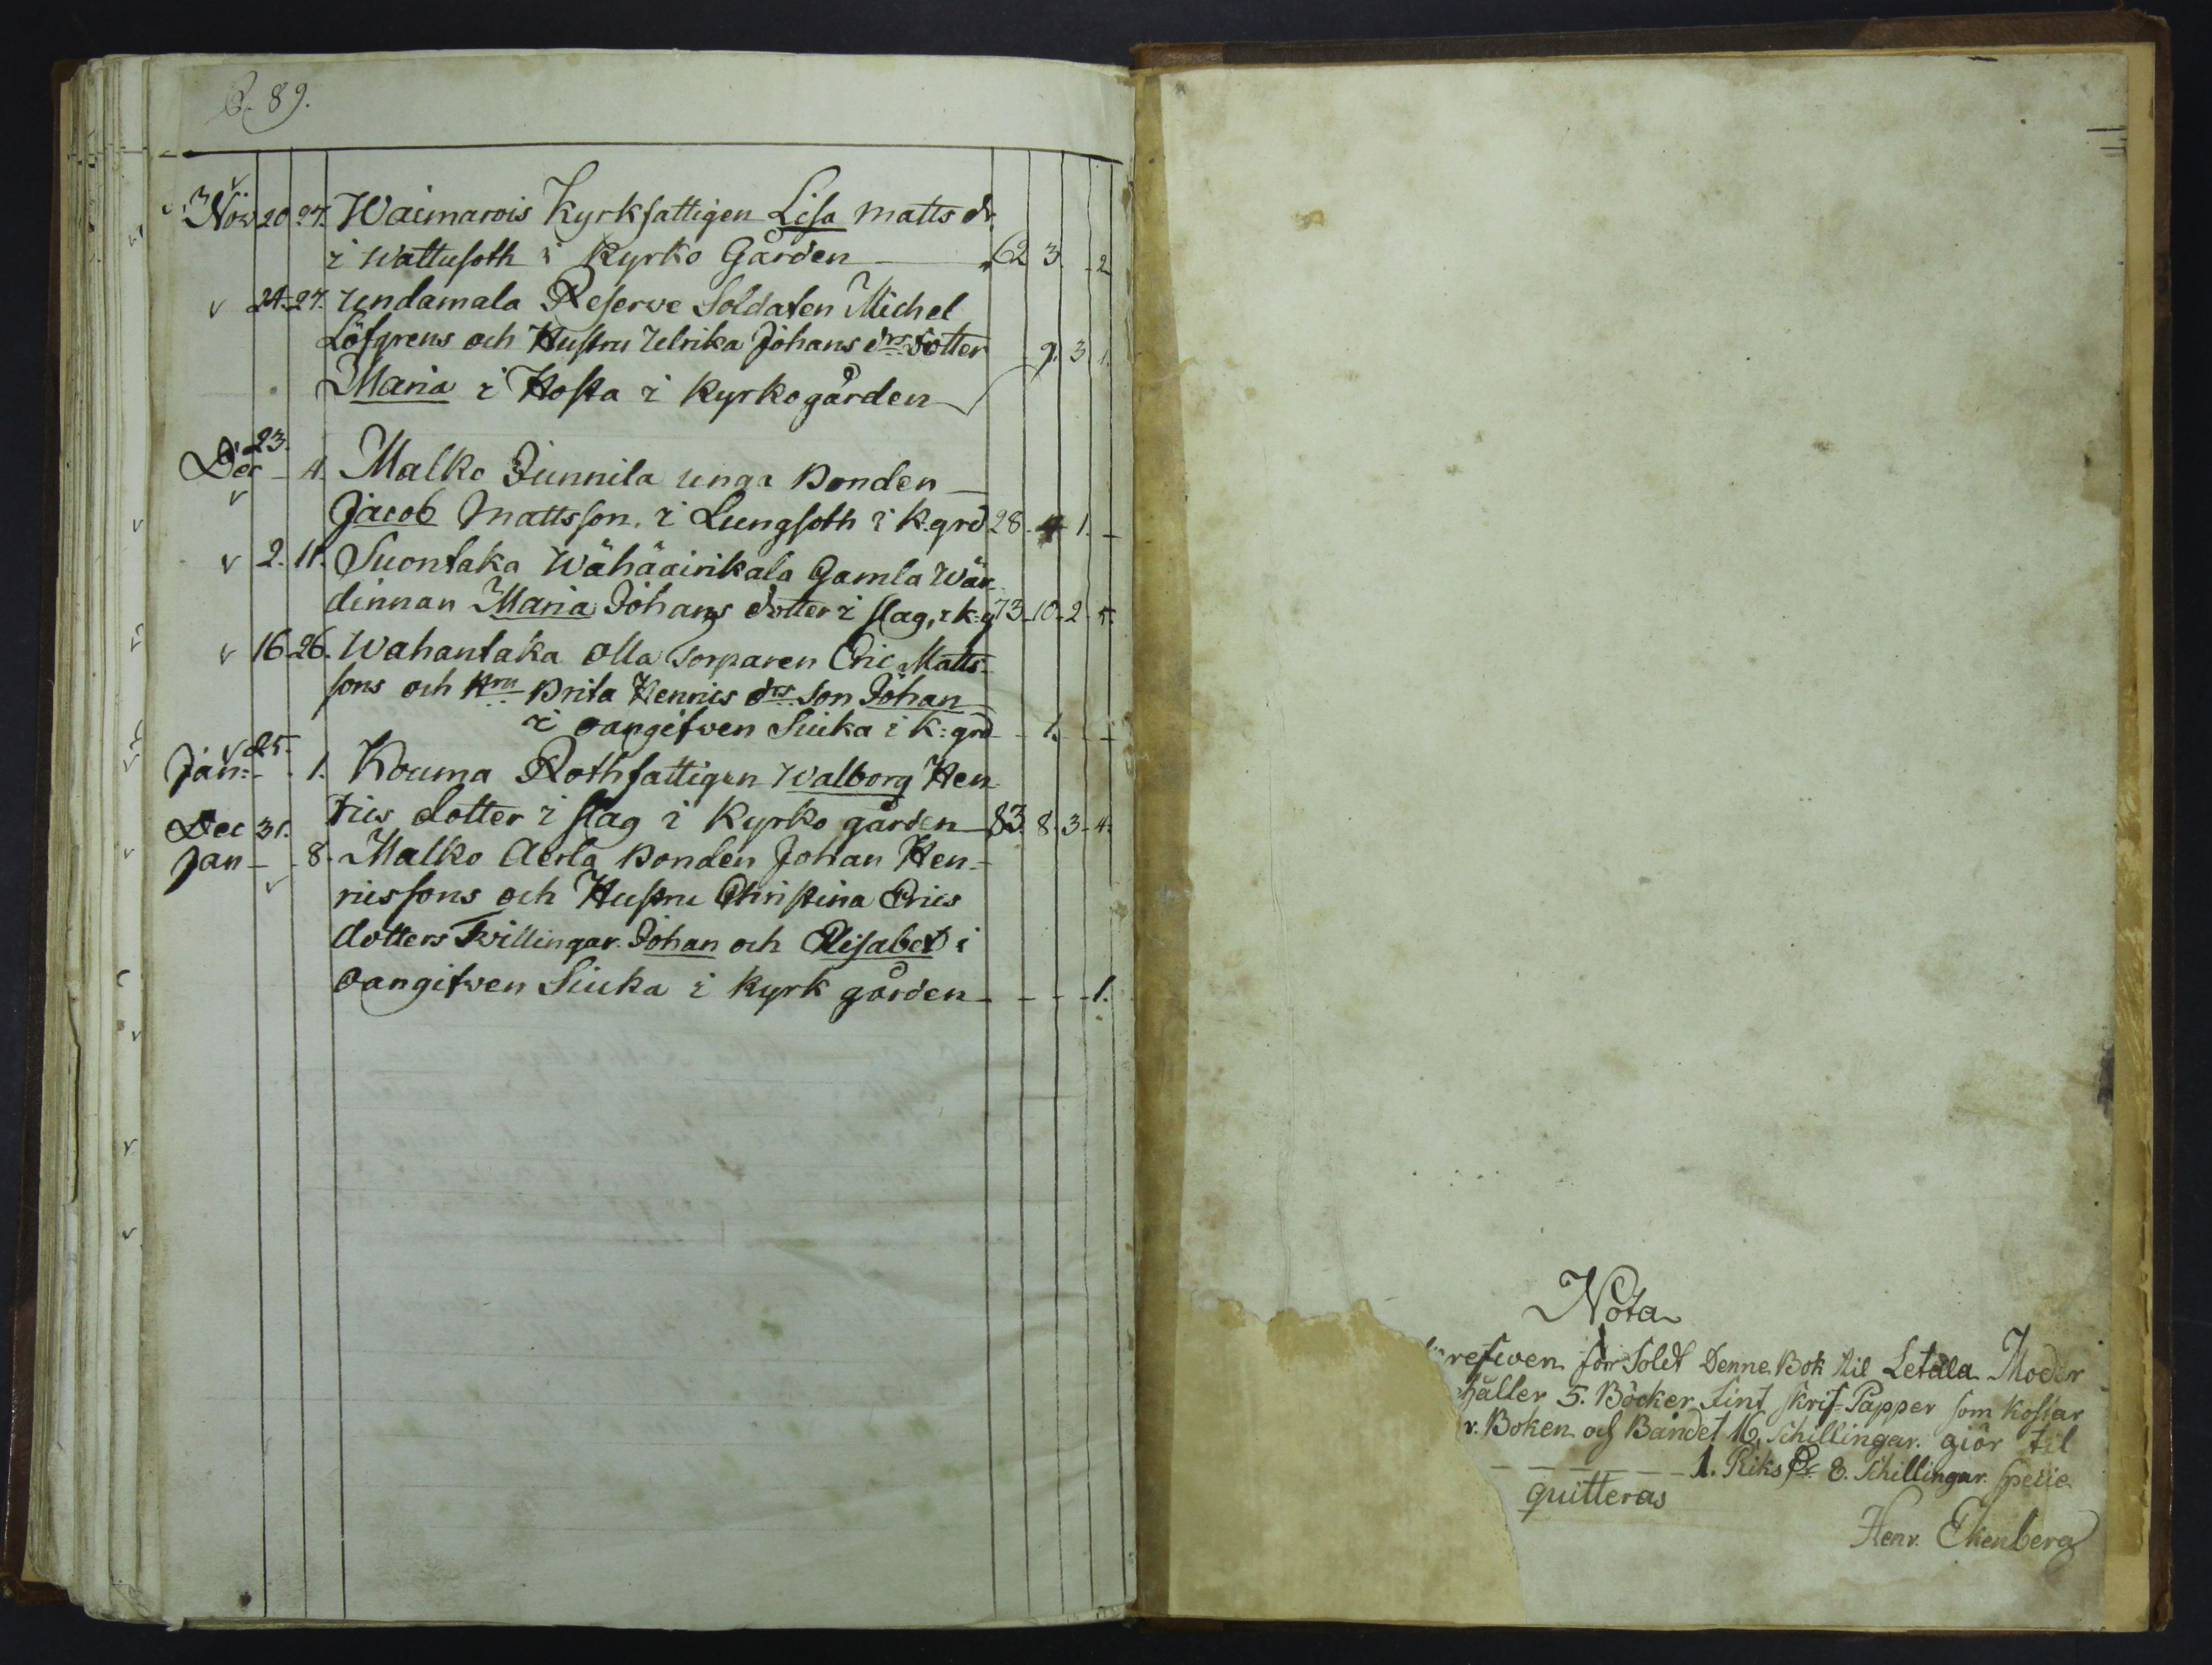 89.
Nov 20. 27. Waimarois Kyrkfattigen Lisa Matts dr.
i Wattusoth i Kyrko Gården 62 3. 2
24. 27. Undamala Reserve Soldaten Michel
Löfgrens och Hustru Ulrika Johans drs dotter 9. 3. 1.
Maria i Hosta i Kyrkogården
23.
Dec 4. Malko Junnila unga Bonden
Jacob Mattsson i Lungsoth i K.grd 28. 4 1.
2. 11. Suontaka Wähääirikala Gamla Wär
dinnan Maria Johans dotter i slag, i k:g 73. 10. 2. 5.
16. 26. Wahantaka Olla Torparen Eric Matts-
sons och Hru Brita Henrics drs son Johan
i oangifven Siuka i K:grd 1.
25.
Jan: 1. Kouma Rothfattigen Walborg Hen
Dec 31. rics dotter i slag i Kyrko gården 83. 8. 3. 4.
Jan 8. Malko Aerla Bonden Johan Hen-
ricssons och Hustru Christina Erics
dotters Twillingar. Johan och Elisabet i
Oangifven Siuka i Kyrk gården 1.
Nota
refwen för Soldt Denne Bok til Letala Moder
håller 5. Böcker Fint Skrif-Papper som kostar
r. Boken och Bandet 16, Schillingar. giör til
1. Riks Dr 8. Schillingar Specie
quitteras
Henr. Ekenberg